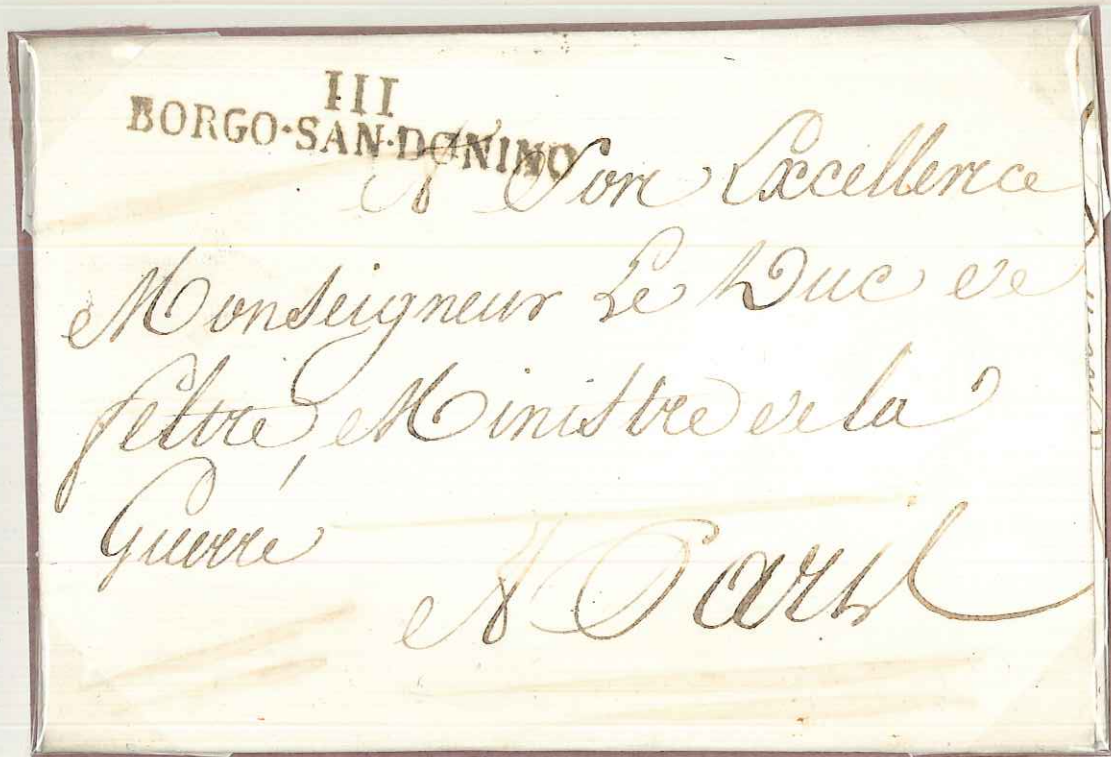 III
BORGO·SAN·DONINO
A Son Excellence
Monseigneur Le Duc de
feltre, Ministre de la
Guerre
A Paris